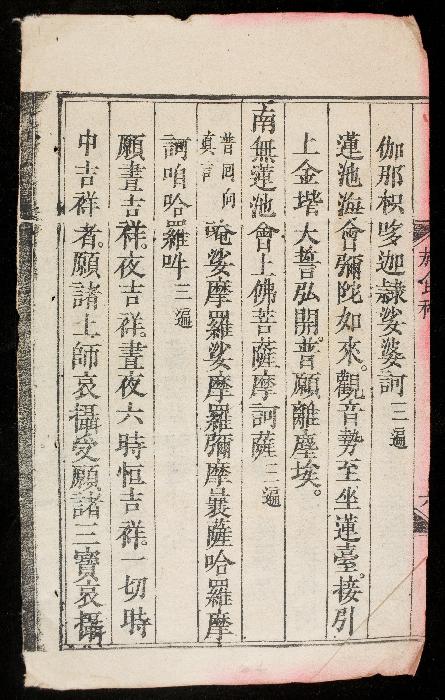 伽那枳多迦隸娑婆訶三遍
蓮池海會彌陀如來。觀音勢至坐蓮臺。接引
上金堦大誓弘開。普願離塵埃。
南無蓮池會上佛菩薩摩訶薩三遍
普回向
真言
唵娑摩羅娑摩羅彌摩曩薩哈羅摩
訶咱哈羅吽三遍
願晝吉祥。夜吉祥。晝夜六時恒吉祥。一切時
中吉祥者。願諸上師哀攝受願諸三寶哀攝